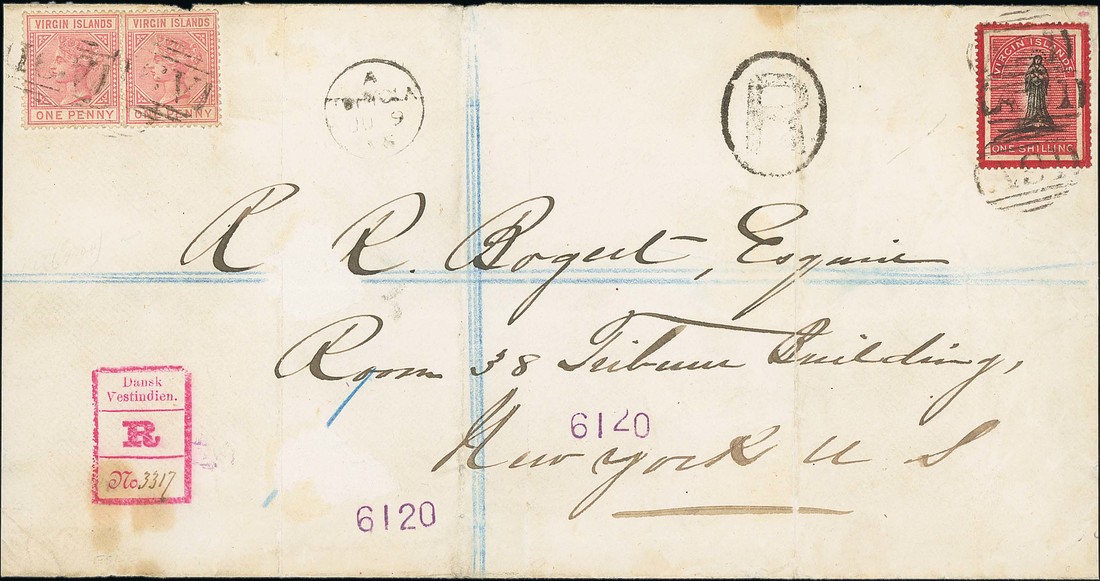 VIRGIN ISLANDS
ONE PENNY
VIRGIN ISLANDS
ONE PENNY
A
TORTOLA
9
R
VIRGIN ISLANDS
ONE SHILLING
R R. Bogert, Esquire
Room 38 Tribune Building,
New York U S
Dansk
Vestindien.
R
No. 3317
6120
6120